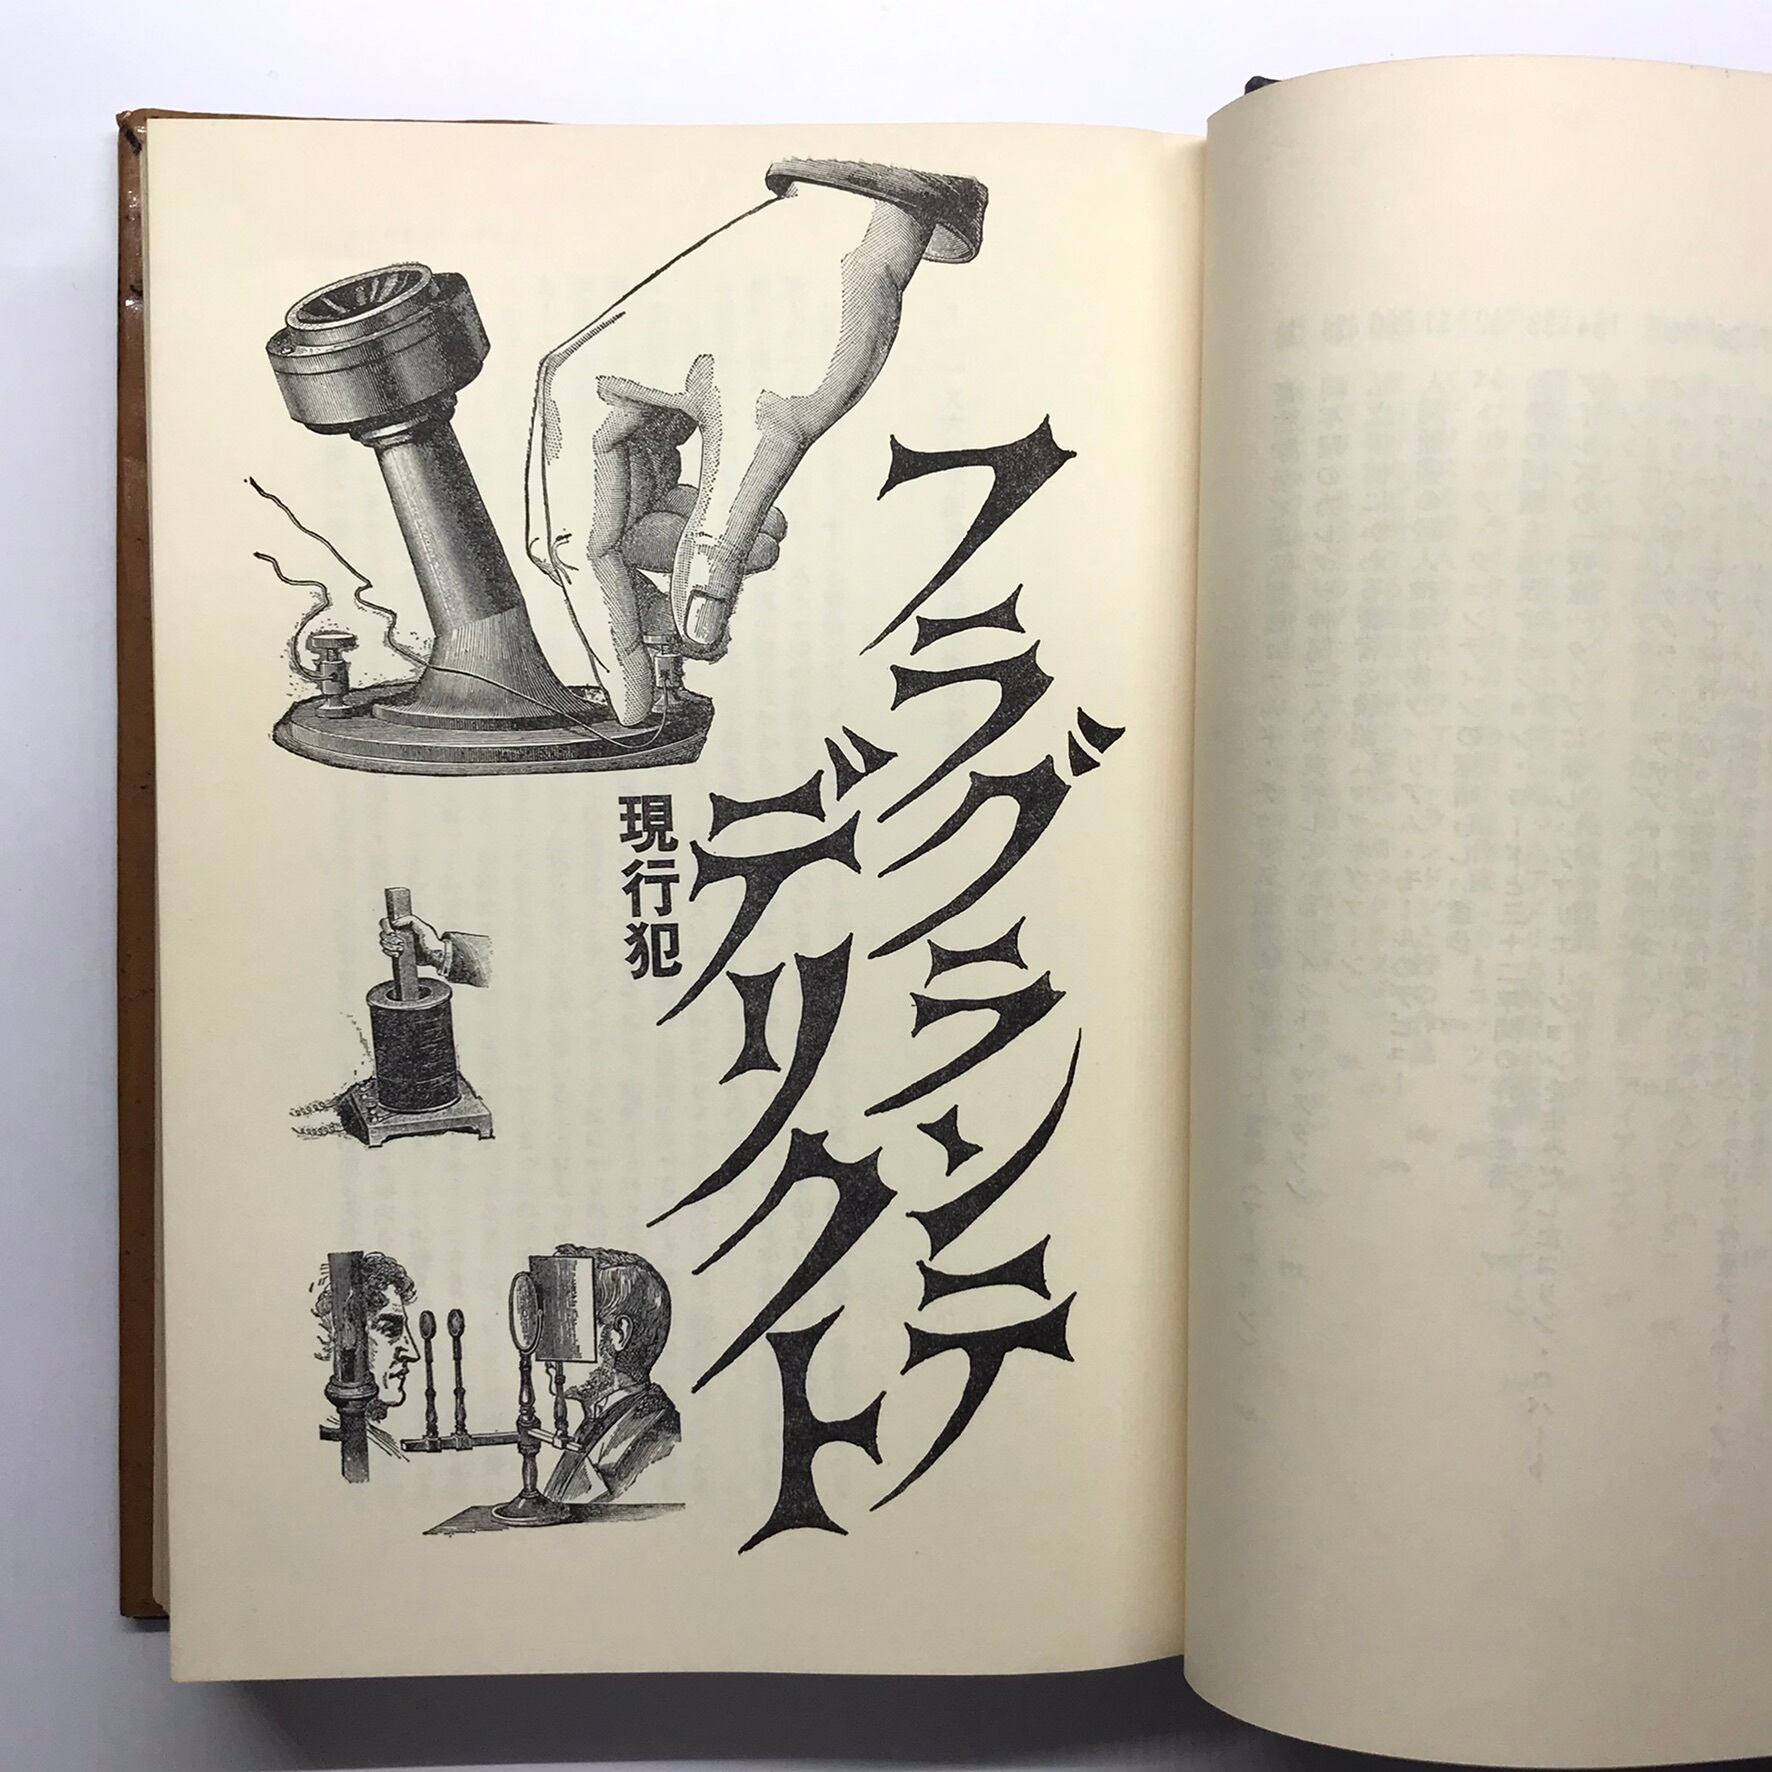 フラグランテ
デリクト
現行犯